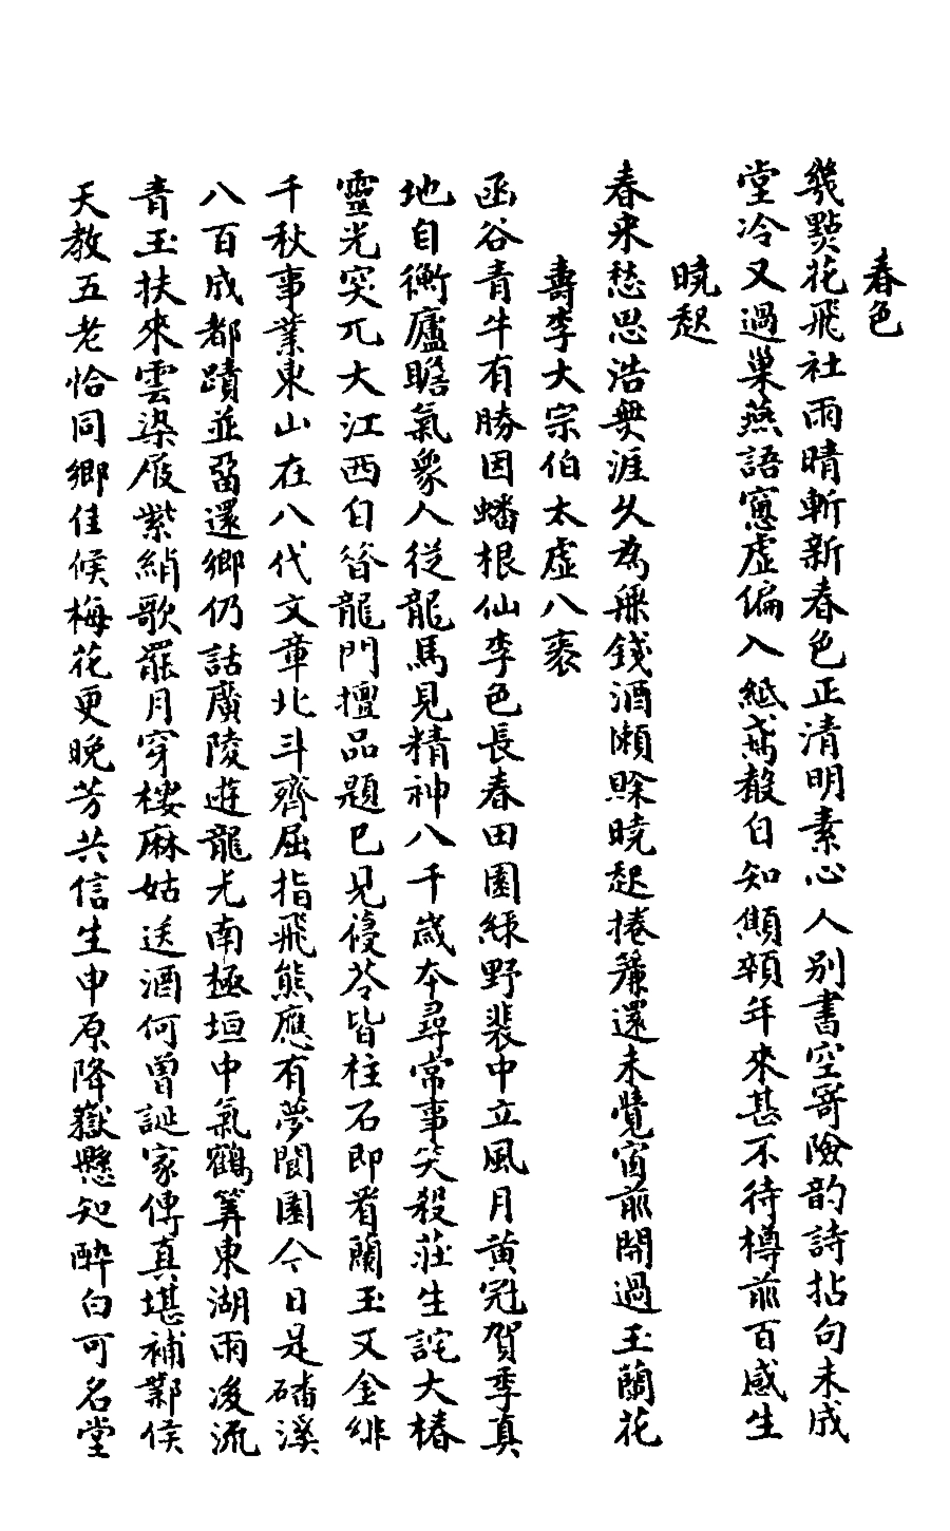 春色
幾點花飛社雨晴斬新春色正清明素心人別書空寄險韵詩拈句未成
堂冷又過巢燕語窻虛偏入紙鳶聲自知顦顇年來甚不待樽前百感生
曉起
春来愁思浩無涯久為無錢酒懶賒曉起捲簾還未覺窗前開過玉蘭花
壽李大宗伯太虛八袠
函谷青牛有勝因蟠根仙李色長春田園綠野裴中立風月黃冠賀季真
地自衡廬瞻氣象人從龍馬見精神八千歲本尋常事笑殺莊生詫大椿
靈光突兀大江西自昝龍門擅品題已見蓡苓皆柱石即看蘭玉又金緋
千秋事業東山在八代文章北斗齊屈指飛熊應有夢閬園今日是磻溪
八百成都蹟並畱還鄉仍話廣陵遊龍光南極垣中氣鶴筭東湖雨後流
青玉扶來雲染屐紫綃歌罷月穿樓麻姑送酒何曾誕家傳真堪補鄴侯
天教五老恰同鄉佳候梅花更晚芳共信生申原降嶽懸知醉白可名堂